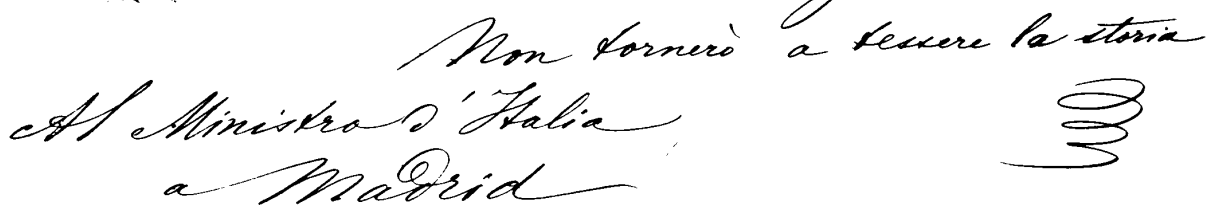 Non tornerò a tessere la storia
Al Ministro d'Italia
a Madrid